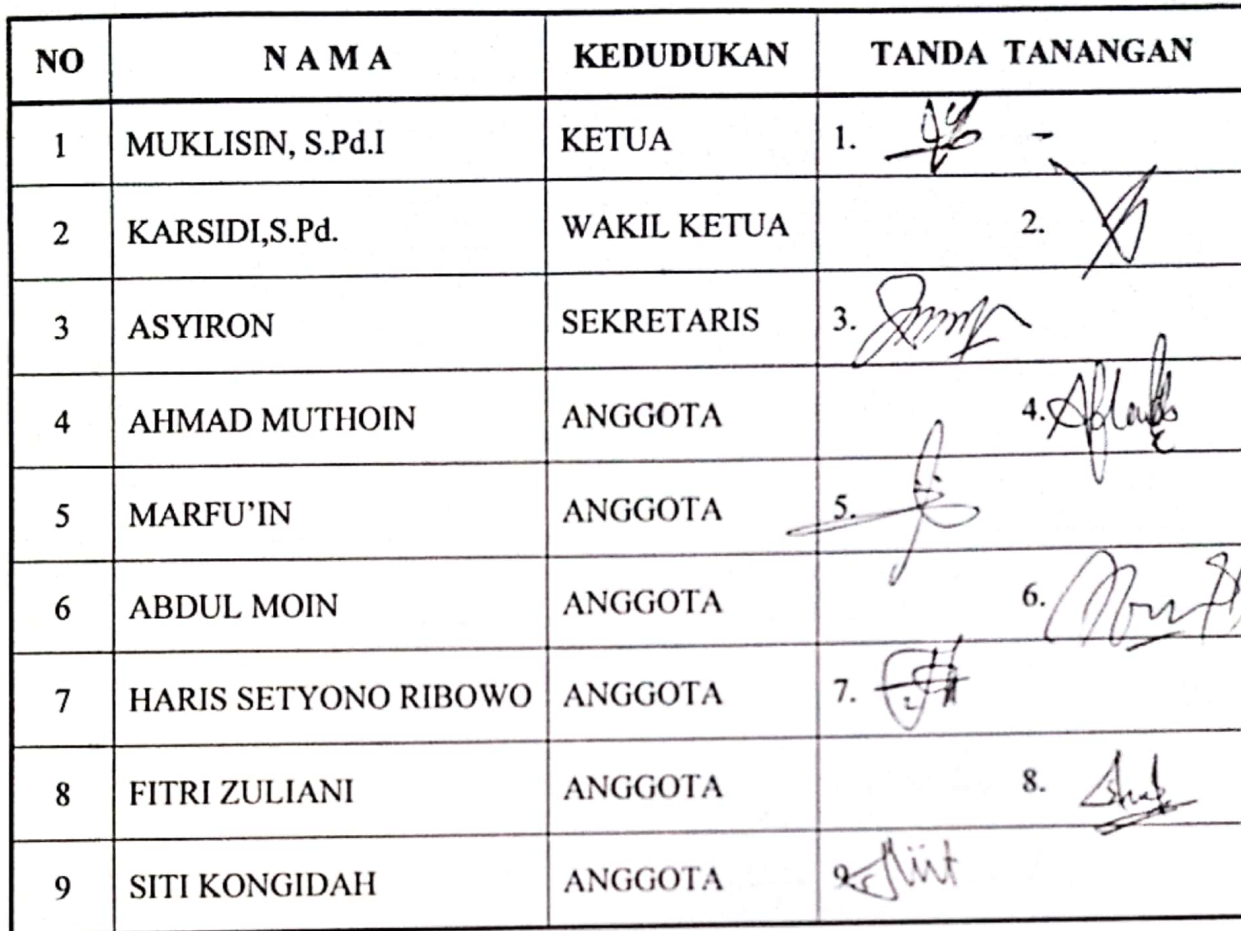 NO N A M A KEDUDUKAN TANDA TANANGAN
1 MUKLISIN, S.Pd.I KETUA 1.
2 KARSIDI,S.Pd. WAKIL KETUA 2.
3 ASYIRON SEKRETARIS 3.
4 AHMAD MUTHOIN ANGGOTA 4.
5 MARFU'IN ANGGOTA 5.
6 ABDUL MOIN ANGGOTA 6.
7 HARIS SETYONO RIBOWO ANGGOTA 7.
8 FITRI ZULIANI ANGGOTA 8.
9 SITI KONGIDAH ANGGOTA 9.